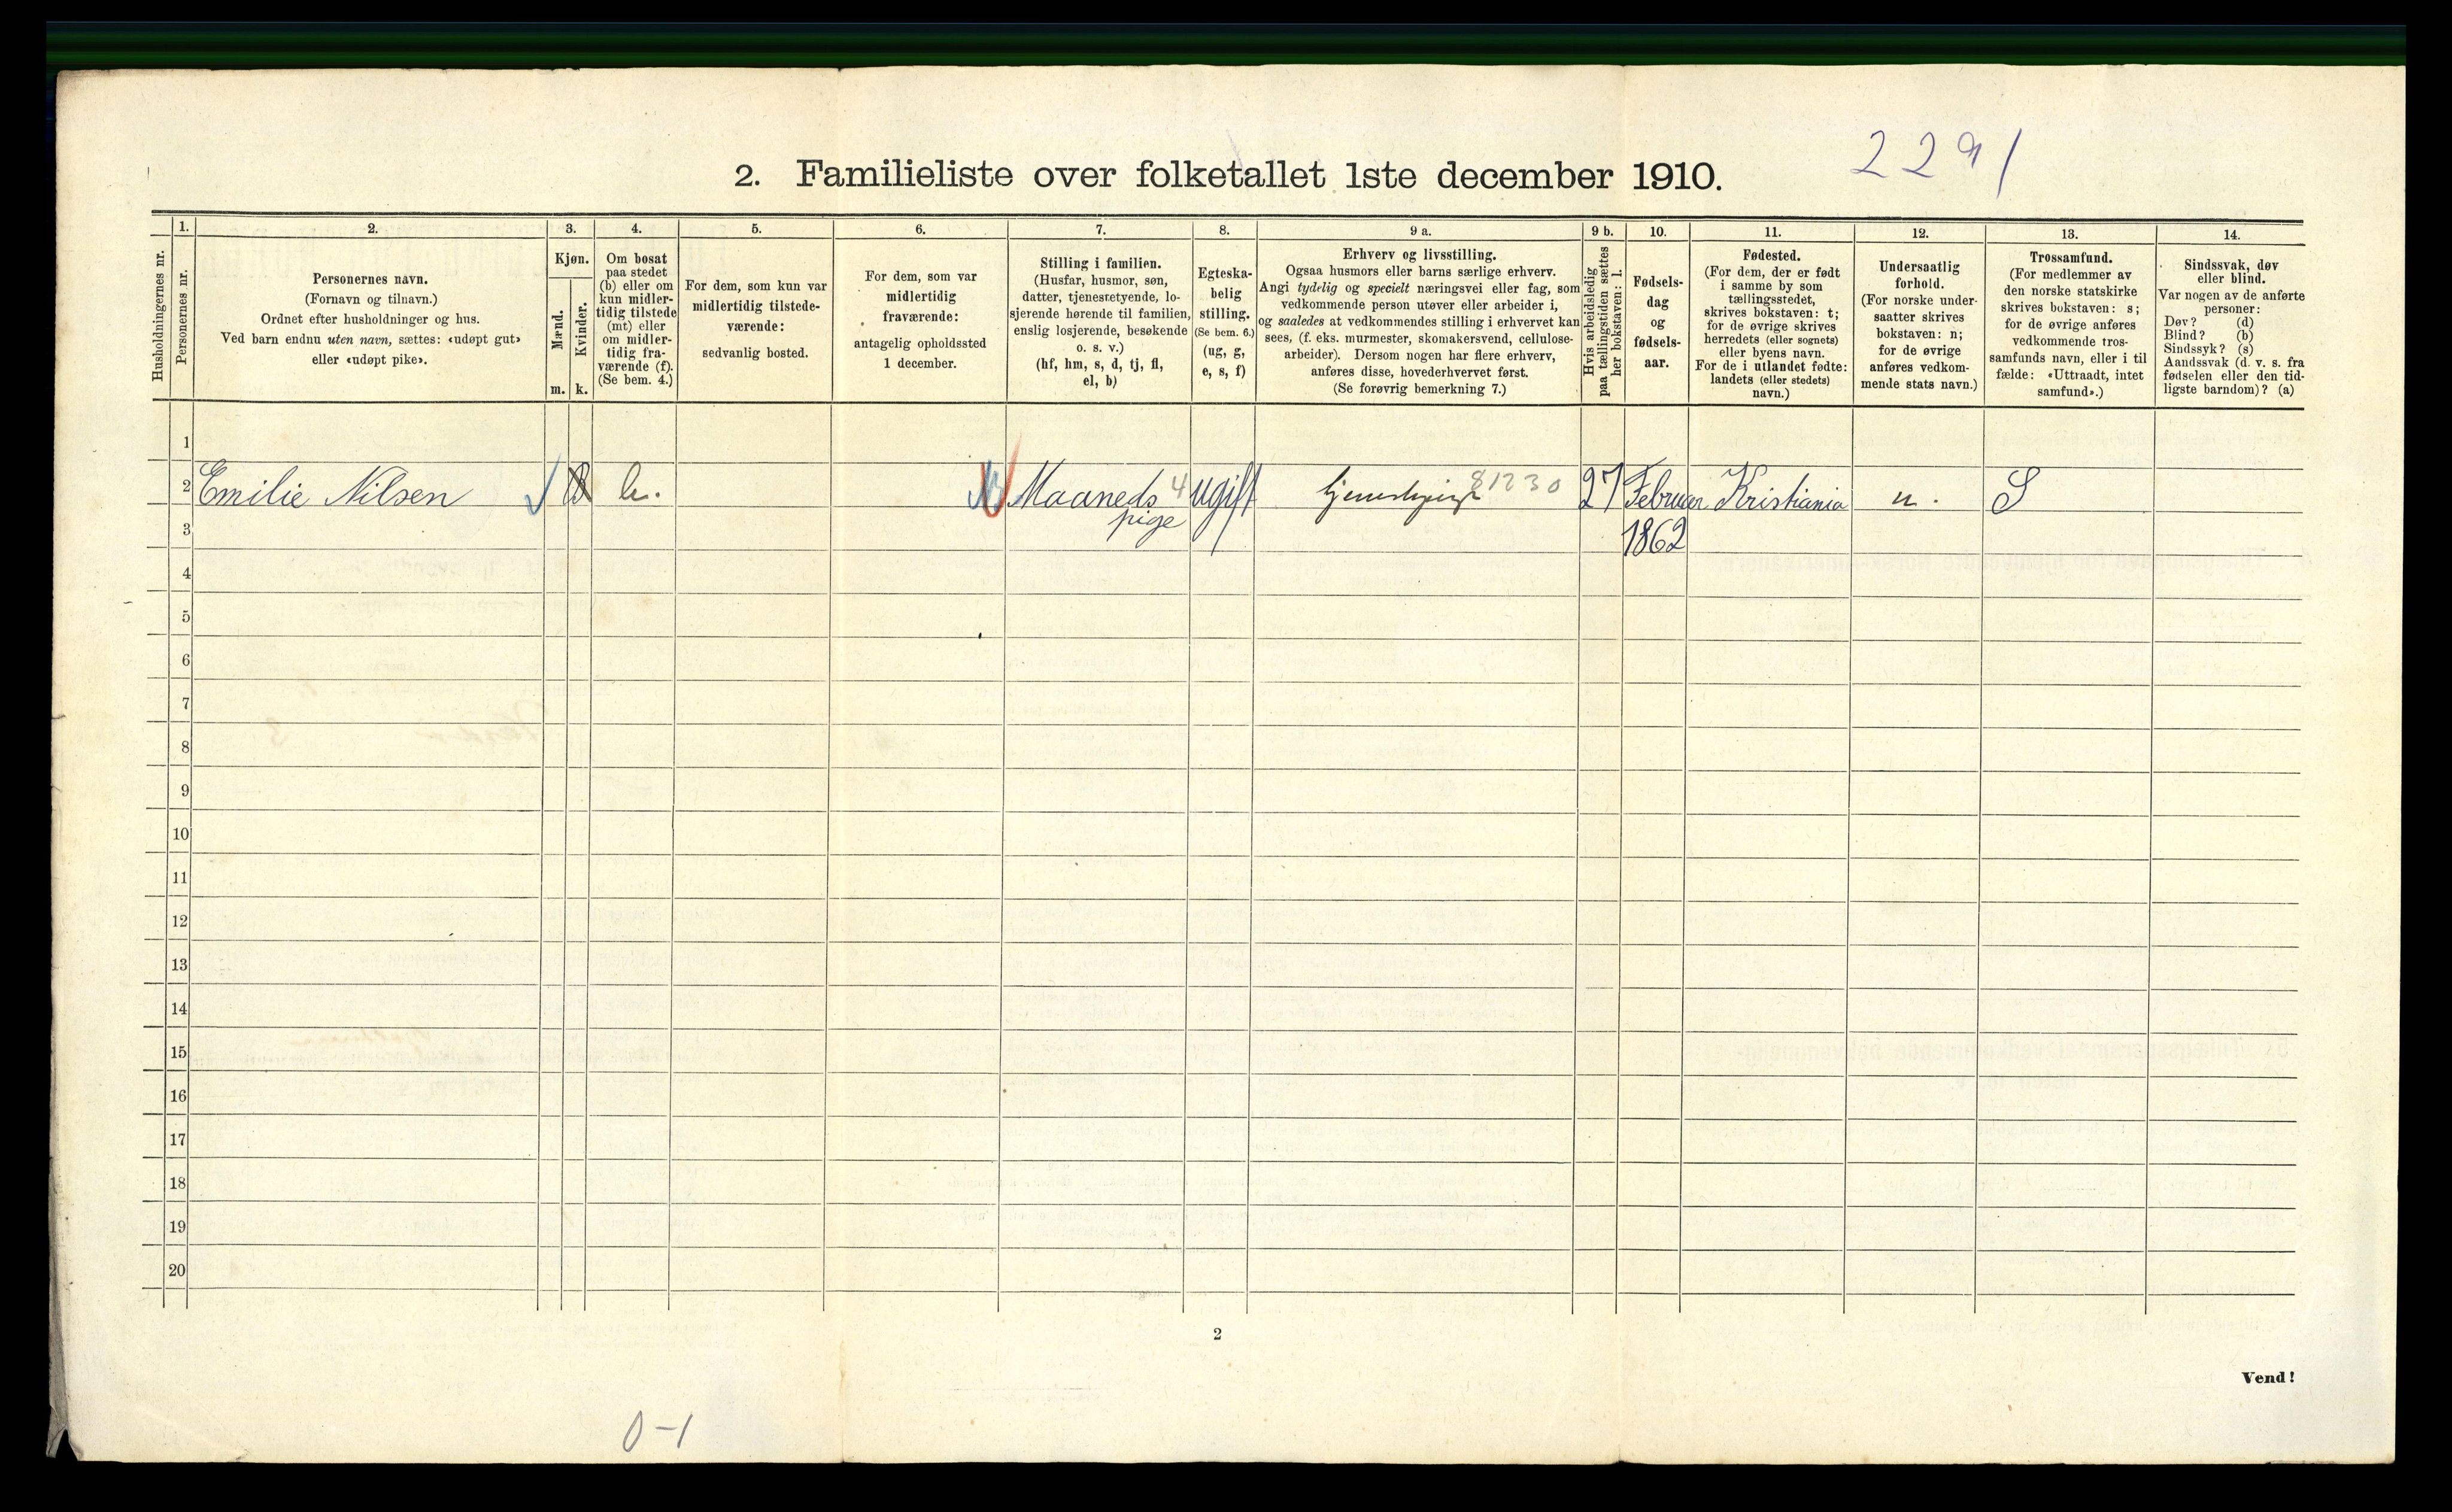 2291
2. Familieliste over folketallet 1ste december 1910.
Husholdningernes nr.
1.
Personernes nr.
2.
Personernes navn.
(Fornavn og tilnavn.)
Ordnet efter husholdninger og hus.
Ved barn endnu uten navn, sættes: «udøpt gut»
eller «udøpt pike».
3.
Kjøn.
Mænd.
Kvinder.
m. k.
4.
Om bosat
paa stedet
(b) eller om
kun midler-
tidig tilstede
(mt) eller
om midler-
tidig fra-
værende (f).
(Se bem. 4.)
5.
For dem, som kun var
midlertidig tilstede-
værende:
sedvanlig bosted.
6.
For dem, som var
midlertidig
fraværende:
antagelig opholdssted
1 december.
7.
Stilling i familien.
(Husfar, husmor, søn,
datter, tjenestetyende, lo-
sjerende hørende til familien,
enslig losjerende, besøkende
o. s. v.)
(hf, hm, s, d, tj, fl,
el, b)
8.
Egteska-
belig
stilling.
(Se bem. 6.)
(ug, g,
e, s, f)
9 a.
Erhverv og livsstilling.
Ogsaa husmors eller barns særlige erhverv.
Angi tydelig og specielt næringsvei eller fag, som
vedkommende person utøver eller arbeider i,
og saaledes at vedkommendes stilling i erhvervet kan
sees, (f. eks. murmester, skomakersvend, cellulose-
arbeider). Dersom nogen har flere erhverv,
anføres disse, hovederhvervet først.
(Se forøvrig bemerkning 7.)
9 b.
Hvis arbeidsledig
paa tællingstiden sættes
her bokstaven: l.
10.
Fødsels-
dag
og
fødsels-
aar.
11.
Fødested.
(For dem, der er født
i samme by som
tællingsstedet,
skrives bokstaven: t;
for de øvrige skrives
herredets (eller sognets)
eller byens navn.
For de i utlandet fødte:
landets (eller stedets)
navn.)
12.
Undersaatlig
forhold.
(For norske under-
saatter skrives
bokstaven: n;
for de øvrige
anføres vedkom-
mende stats navn.)
13.
Trossamfund.
(For medlemmer av
den norske statskirke
skrives bokstaven: s;
for de øvrige anføres
vedkommende tros-
samfunds navn, eller i til
fælde: «Uttraadt, intet
samfund».)
14.
Sindssvak, døv
eller blind.
Var nogen av de anførte
personer:
Døv? (d)
Blind? (b)
Sindssyk? (s)
Aandssvak (d. v. s. fra
fødselen eller den tid-
ligste barndom)? (a)
1
2 Emilie Nilsen b. Maaneds 4 ugift 81230 27 Februar Kristiania n. S
pige
3 1862
4
5
6
7
8
9
10
11
12
13
14
15
16
17
18
19
20
2
Vend!
0-1